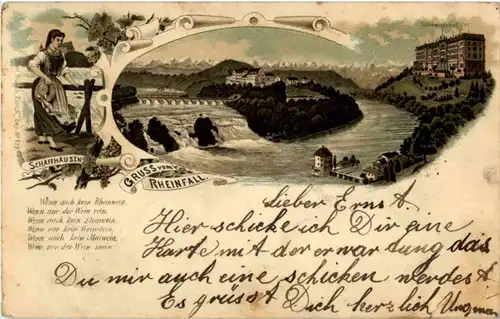 SCHAFFHAUSEN
GRUSS VOM
RHEINFALL.
Wenn auch kein Rheinwein,
Wenn nur der Wein rein,
Wenn auch kein Steinwein,
Wenn nur kein
Wenn auch kein
Wenn nur der Wein mein
Lieber Ernst.
Hier schicke ich Dir eine
Karte mit der erwartung das
Du mir auch eine schicken werdest
Es grüsst Dich herzlich